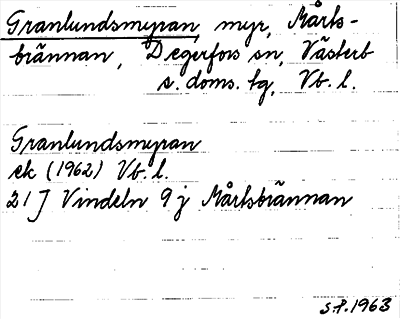 Granlundsmyran, myr, Mårts-
brännan, Degerfors sn, Västerb
s. doms. tg, Vb. l.
Granlundsmyran
ek (1962) Vb. l.
21 J Vindeln 9 j Mårtsbrännan
S.F. 1963